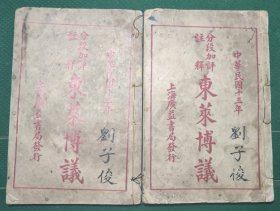 中華民國十三年
分段加評
註釋
東萊博議
上海廣益書局發行
劉子俊
分段加評
註釋
東萊博議
上海廣益書局發行
劉子俊